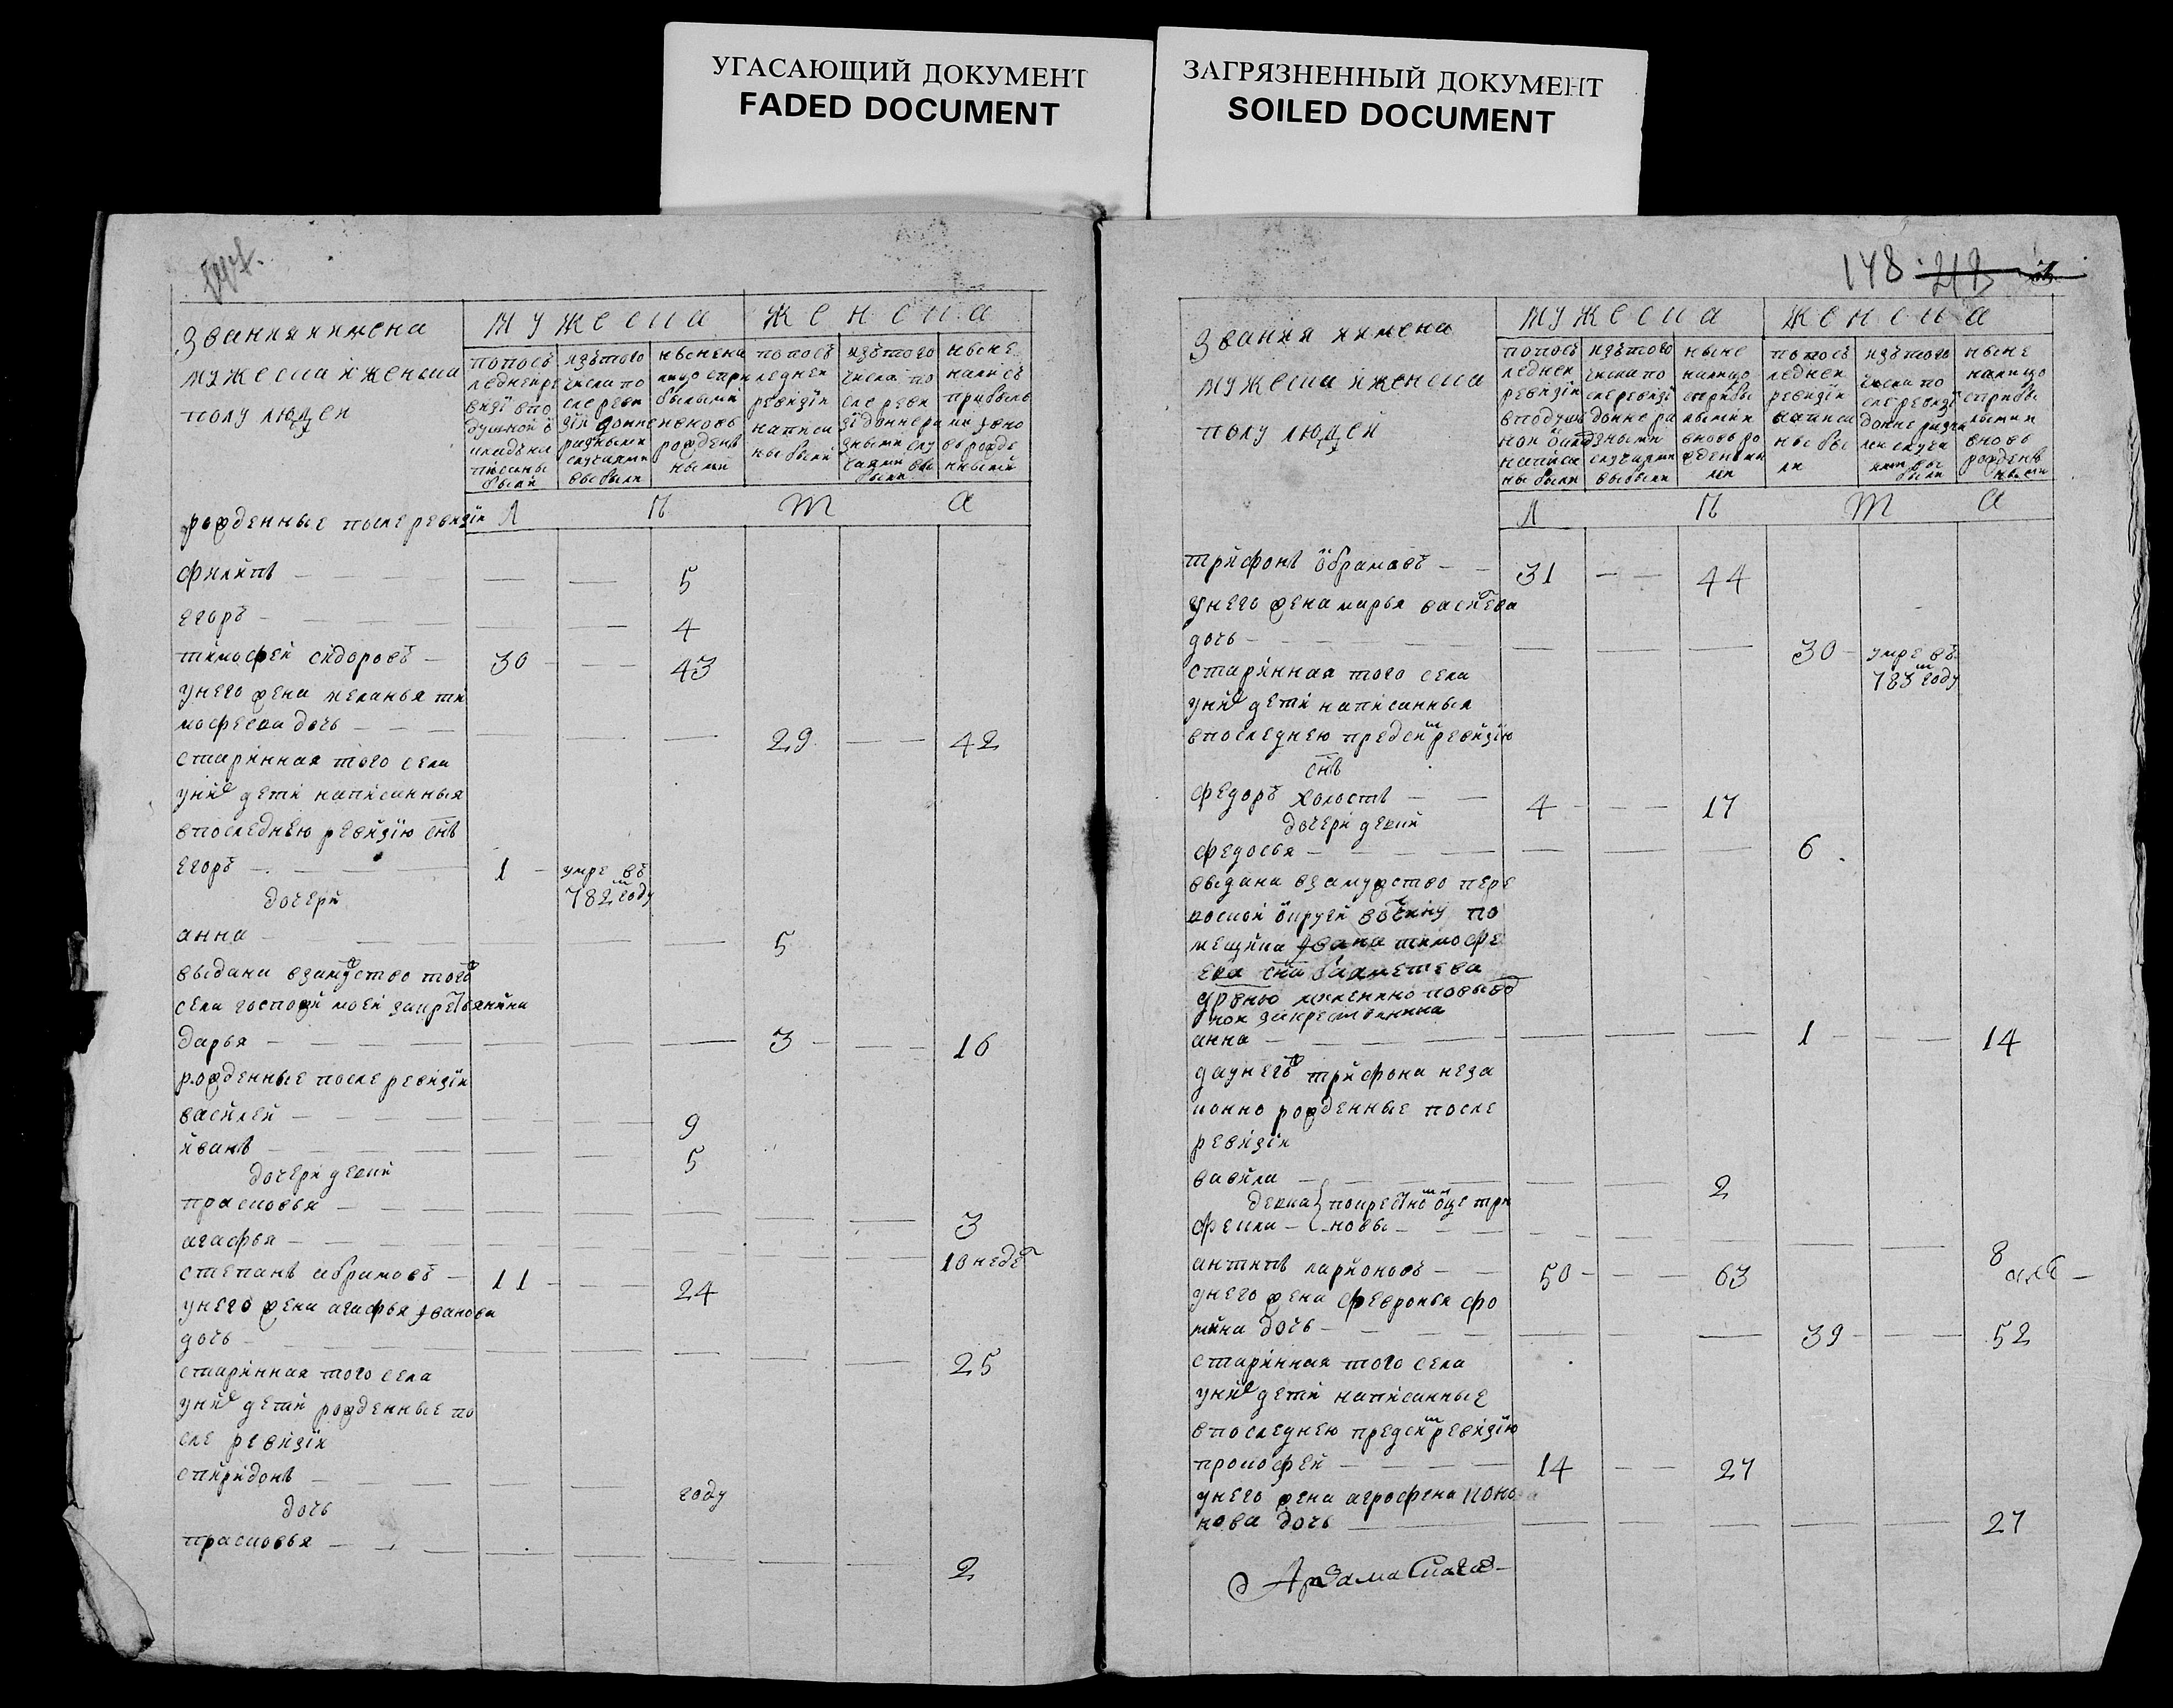 УГАСАЮЩИЙ ДОКУМЕНТ
FADED DOCUMENT
ЗАГРЯЗНЕННЫЙ ДОКУМЕНТ
SOILED DOCUMENT
Звания имена
мужеска иженска
полу людеи
мужеска
женска
попосъ
леднеире
визї впо
душной о
кладъна
писаны
были
изътого
числа по
сле реви
зїи донне
разными
случаями
выбыли
ныснена
лицо спри
былыми
ивновь
рожденъ
ными
попосъ
леднеи
ревизїи
написа
ны были
изътого
числа по
сле реви
зїдоннера
зными слу
чаями вы
были
ныне
налисъ
прибылы
ми
рожде
нными
л ѣ т а
рожденные послеревизїи
филипъ — — 5
егоръ — — 4
тимофеи сидоровъ — 30 — 43
унего жена меланья ти
мофеева дочь — 29 — 42
старинная того села
уних дети написанныя
впоследнею ревизїю снъ
егоръ — 1 — умре въ
782м году
дочери
анна — 5
выдана взамужство того ж
села госпожи моеи закрестьянина
дарья — 3 — 16
рожденные послеревизїи
василеи — 9
иванъ — 5
дочери девки
прасковья — 3
агафья — 10 недел
степанъ абрамовъ — 11 — 24
унего жена агафья иванова
дочь — 25
старинная того села
уних дети рожденные по
сле ревизїи
спиридонъ — году
дочь
прасковья — 2
148
Звания имена
мужеска иженска
полу людеи
мужеска
женска
попосъ
леднеи
ревизїи
вподуш
нои
написа
ны были
изътого
числа по
слеревизї
донне ра
зными
случаями
выбыли
ныне
налицо
сприбы
лыми и
вновь ро
жденны
ми
попосъ
леднеи
ревизїи
написа
ны бы
ли
изътого
числа по
слеревизї
донне разны
ми случа
ями вы
были
ныне
налицо
сприбы
лыми и
вновь
рожденъ
ными
л ѣ т а
трифонъ абрамовъ — 31 — 44
унего жена марья васильева
дочь — 30 — умре въ
783м году
старинная того села
уних дети написанныя
впоследнею предсим ревизїю
снъ
федоръ холостъ — 4 — 17
дочери девки
федосья — 6
выдана взамужство пере
воской округи вотчину по
мещика ивана тимофе
ева сна бахметева
дрвню
закрестьянина
анна — 1 — 14
даунегож трифона неза
конно рожденные после
ревизїи
вавила — 2
девка покрестном отце три
фекла — новы — 8
антипъ ларионовъ — 50 — 63
унего жена февронья фо
мина дочь — 39 — 52
старинная того села
уних дети написанные
впоследнею предсим ревизїю
прокофеи — 14 — 27
унего жена агрофена коно
нова дочь — 27